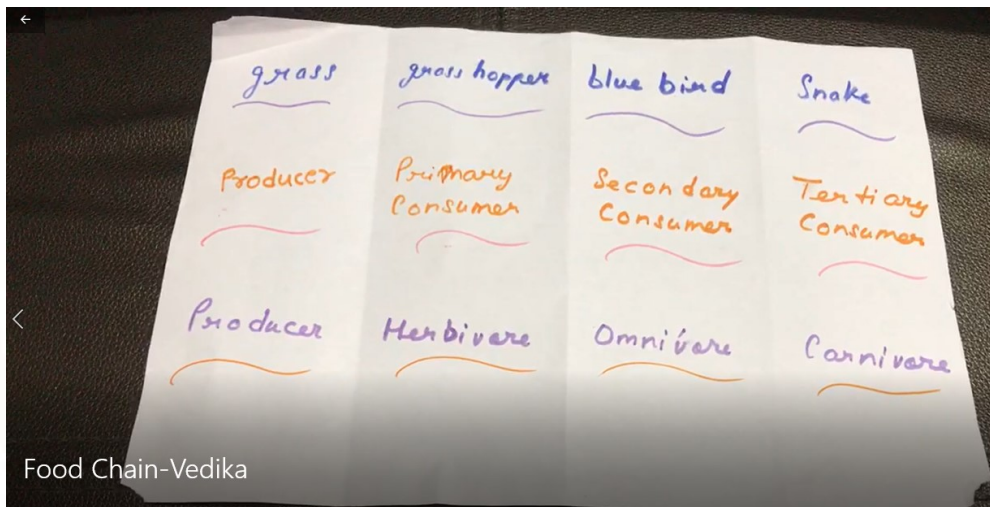 grass grass hopper blue bird Snake
Producer Primary Consumer Secondary Consumer Tertiary Consumer
Producer Herbivore Omnivore Carnivore
Food Chain-Vedika